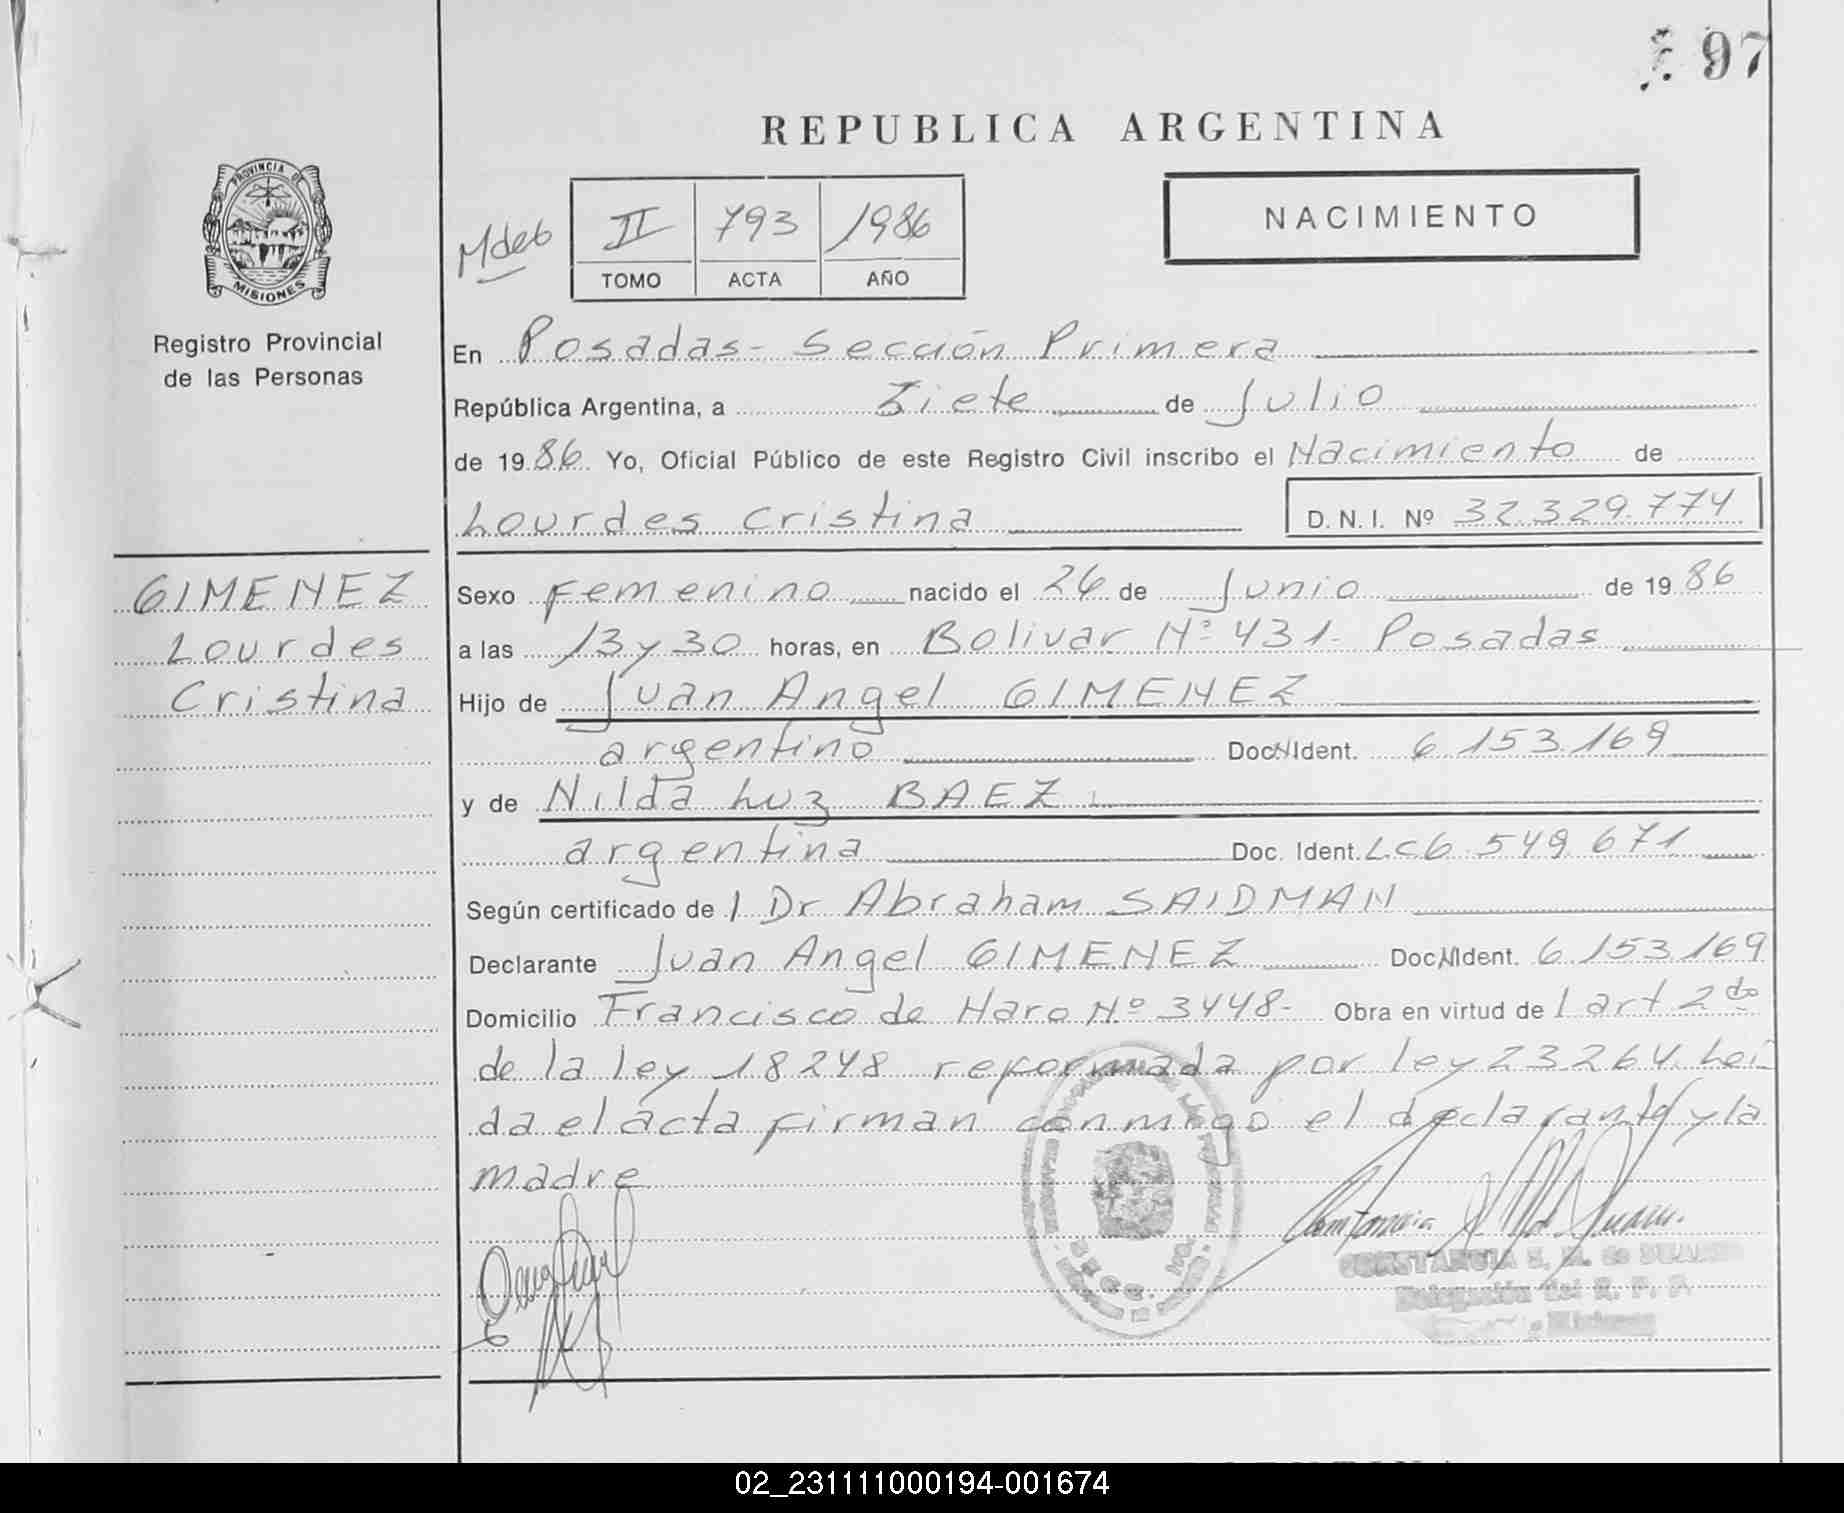 97
REPUBLICA ARGENTINA
PROVINCIA DE
MISIONES
Registro Provincial
de las Personas
II 793 1986
TOMO ACTA AÑO
NACIMIENTO
En Posadas- Sección Primera
República Argentina, a Siete de Julio
de 1986 Yo, Oficial Público de este Registro Civil inscribo el Nacimiento de
Lourdes Cristina D.N.I. Nº 32.329.774
GIMENEZ
Lourdes
Cristina
Sexo Femenino nacido el 26 de Junio de 1986
a las 13 y 30 horas, en Bolivar Nº 431- Posadas
Hijo de Juan Angel GIMENEZ
argentino Doc. Ident. 6.153.169
y de Nilda Luz BAEZ
argentina Doc. Ident. LC6.549.671
Según certificado de l Dr Abraham SAIDMAN
Declarante Juan Angel GIMENEZ Doc. Ident. 6.153.169
Domicilio Francisco de Haro Nº 3448- Obra en virtud de l art 2do
de la ley 18248 reformada por ley 23264. Leí
da el acta firman conmigo el declarante y la
madre
CONSTANCIA S. M. de DUARTE
Delegación del R. P. P.
Misiones
02_231111000194-001674